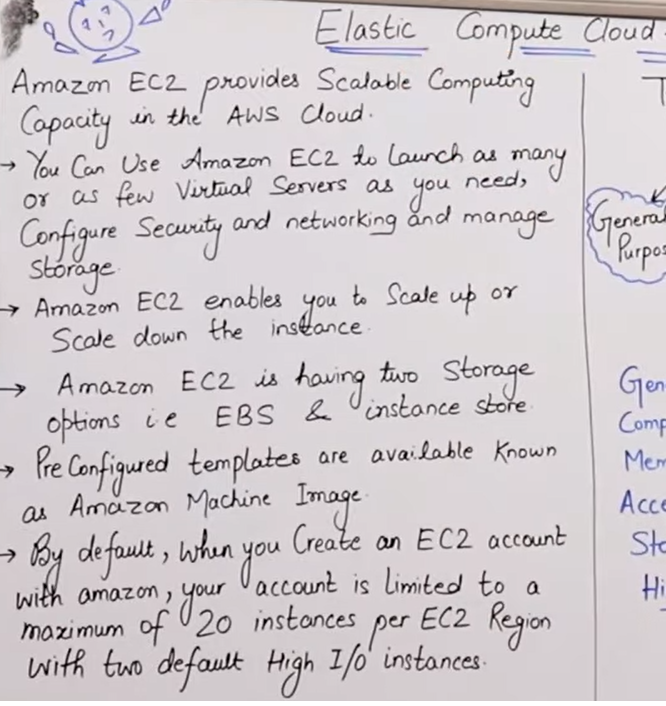 Elastic Compute Cloud
Amazon EC2 provides Scalable Computing
Capacity in the AWS Cloud.
→ You Can Use Amazon EC2 to Launch as many
or as few Virtual Servers as you need,
Configure Security and networking and manage
Storage.
→ Amazon EC2 enables you to Scale up or
Scale down the instance.
→ Amazon EC2 is having two Storage
options i.e EBS & instance store.
→ Pre Configured templates are available Known
as Amazon Machine Image.
→ By default, when you Create an EC2 account
with amazon, your account is Limited to a
maximum of 20 instances per EC2 Region
with two default High I/O instances.
T
General
Purpos
Gen
Comp
Mem
Acce
Sto
Hi